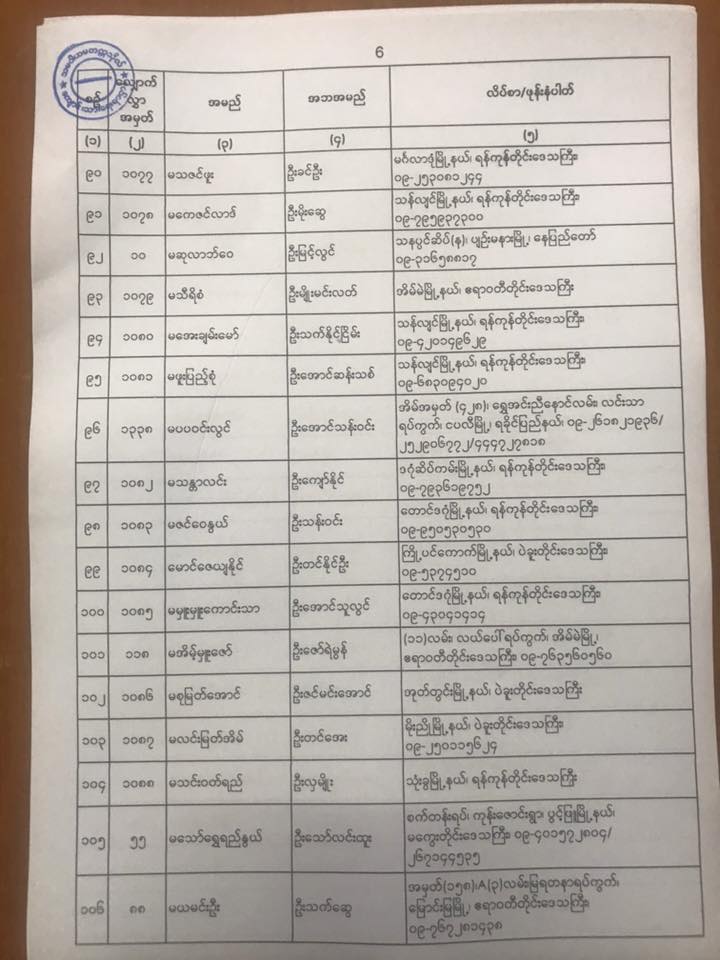 6
စဉ် လျှောက် လွှာ အမှတ် အမည် အဘအမည် လိပ်စာ/ဖုန်းနံပါတ်
(၁) (၂) (၃) (၄) (၅)
၉၀ ၁၀၇၇ မသဇင်ဖူး ဦးခင်ဦး မင်္ဂလာဒုံမြို့နယ်၊ ရန်ကုန်တိုင်းဒေသကြီး၊
၀၉-၂၅၃၀၈၁၂၄၄
၉၁ ၁၀၇၈ မကေဇင်လာဒ် ဦးမိုးဆွေ သန်လျင်မြို့နယ်၊ ရန်ကုန်တိုင်းဒေသကြီး၊
၀၉-၇၉၅၉၃၇၃၀၀
၉၂ ၁၀ မဆုလာဘ်ဝေ ဦးမြင့်လွင် သနပွင်ဆိပ်(န)၊ ပျဉ်းမနားမြို့၊ နေပြည်တော်
၀၉-၃၁၆၅၈၈၁၇
၉၃ ၁၀၇၉ မသီရိစံ ဦးမျိုးမင်းလတ် အိမ်မဲမြို့နယ်၊ ဧရာဝတီတိုင်းဒေသကြီး
၉၄ ၁၀၈၀ မအေးချမ်းမော် ဦးသက်နိုင်ငြိမ်း သန်လျင်မြို့နယ်၊ ရန်ကုန်တိုင်းဒေသကြီး၊
၀၉-၄၂၀၁၄၉၆၂၉
၉၅ ၁၀၈၁ မဖူးပြည့်စုံ ဦးအောင်ဆန်းသစ် သန်လျင်မြို့နယ်၊ ရန်ကုန်တိုင်းဒေသကြီး၊
၀၉-၆၈၃၀၉၄၀၂၀
၉၆ ၁၃၃၈ မပပဝင်းလွင် ဦးအောင်သန်းဝင်း အိမ်အမှတ် (၄၂၈)၊ ရွှေအင်းညီနောင်လမ်း၊ လင်းသာ
ရပ်ကွက်၊ ငပလီမြို့၊ ရခိုင်ပြည်နယ်၊ ၀၉-၂၆၁၈၂၁၉၃၆/
၂၅၂၉၀၆၇၇၂/၄၄၄၇၂၇၈၁၈
၉၇ ၁၀၈၂ မသန္တာလင်း ဦးကျော်နိုင် ဒဂုံဆိပ်ကမ်းမြို့နယ်၊ ရန်ကုန်တိုင်းဒေသကြီး၊
၀၉-၇၉၃၆၁၉၇၅၂
၉၈ ၁၀၈၃ မဇင်ဝေနွယ် ဦးသန်းဝင်း တောင်ဒဂုံမြို့နယ်၊ ရန်ကုန်တိုင်းဒေသကြီး၊
၀၉-၉၅၀၅၃၀၅၃၀
၉၉ ၁၀၈၄ မောင်ဇေယျနိုင် ဦးတင်နိုင်ဦး ကြို့ပင်ကောက်မြို့နယ်၊ ပဲခူးတိုင်းဒေသကြီး၊
၀၉-၅၃၇၄၅၁၀
၁၀၀ ၁၀၈၅ မမှူးမှူးကောင်းသာ ဦးအောင်သူလွင် တောင်ဒဂုံမြို့နယ်၊ ရန်ကုန်တိုင်းဒေသကြီး၊
၀၉-၄၃၀၄၁၄၁၄
၁၀၁ ၁၁၈ မအိမ့်မှူးဇော် ဦးဇော်ရဲမွန် (၁၁)လမ်း၊ လယ်ပေါ်ရပ်ကွက်၊ အိမ်မဲမြို့၊
ဧရာဝတီတိုင်းဒေသကြီး၊ ၀၉-၇၆၃၅၆၀၅၆၀
၁၀၂ ၁၀၈၆ မစုမြတ်အောင် ဦးဇင်မင်းအောင် အုတ်တွင်းမြို့နယ်၊ ပဲခူးတိုင်းဒေသကြီး
၁၀၃ ၁၀၈၇ မလင်းမြတ်အိမ် ဦးတင်အေး မိုးညိုမြို့နယ်၊ ပဲခူးတိုင်းဒေသကြီး၊
၀၉-၂၅၀၁၁၅၆၂၄
၁၀၄ ၁၀၈၈ မသင်းဝတ်ရည် ဦးလှမျိုး သုံးခွမြို့နယ်၊ ရန်ကုန်တိုင်းဒေသကြီး
၁၀၅ ၅၅ မသော်ရွှေရည်နွယ် ဦးသော်လင်းထူး စက်တန်းရပ်၊ ကုန်းဇောင်းရွာ၊ ပွင့်ဖြူမြို့နယ်၊
မကွေးတိုင်းဒေသကြီး၊ ၀၉-၄၀၁၅၇၂၈၀၄/
၂၆၇၁၄၄၅၃၅
၁၀၆ ၈၈ မယမင်းဦး ဦးသက်ဆွေ အမှတ်(၁၅၈)၊A(၃)လမ်း၊မြရတနာရပ်ကွက်၊
မြောင်းမြမြို့၊ ဧရာဝတီတိုင်းဒေသကြီး၊
၀၉-၇၆၇၂၈၁၄၃၈